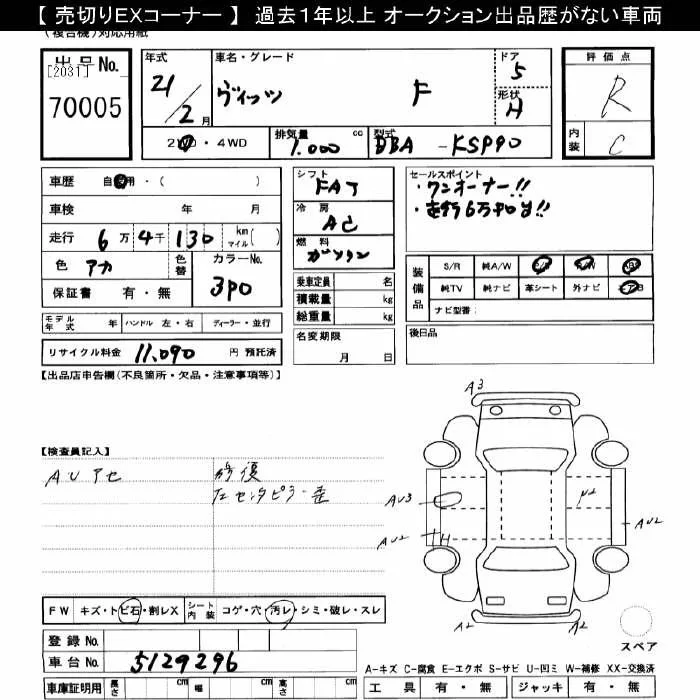 【 売切りEXコーナー 】 過去1年以上 オークション出品歴がない車両
(複合機)対応用紙
出品 No.
[2031]
70005
年式 21/2月
車名・グレード ヴィッツ F
ドア 5
形状 H
評価点 R
内装 C
2WD・4WD
排気量 1.000 cc
型式 DBA - KSP90
車歴 自家用・( )
車検 年 月
走行 6万 4千 130 km マイル( )
色 アカ
色替
カラーNo. 3P0
保証書 有・無
シフト FAT
冷房 AC
燃料 ガソリン
乗車定員 名
積載量 kg
総重量 kg
名変期限 月 日
セールスポイント
・ワンオーナー!!
装備品
S/R 純A/W P/S P/W
純TV 純ナビ 革シート 外ナビ
ナビ型番:
後日品
モデル年式 年 ハンドル 左・右 ディーラー・並行
リサイクル料金 11,090 円 預託済
【出品店申告欄(不良箇所・欠品・注意事項等)】
【検査員記入】
AUアセ
修復
左センタピラー歪
A3
AU3
AU2
H
U2
AU2
A2
A2
スペア
FW キズ・トビ石・割レX シート内装 コゲ・穴・汚レ・シミ・破レ・スレ
登録 No.
車台 No. 5129296
車庫証明用 長さ cm 幅 cm 高さ cm
A-キズ C-腐食 E-エクボ S-サビ U-凹ミ W-補修 XX-交換済
工具 有・無 ジャッキ 有・無